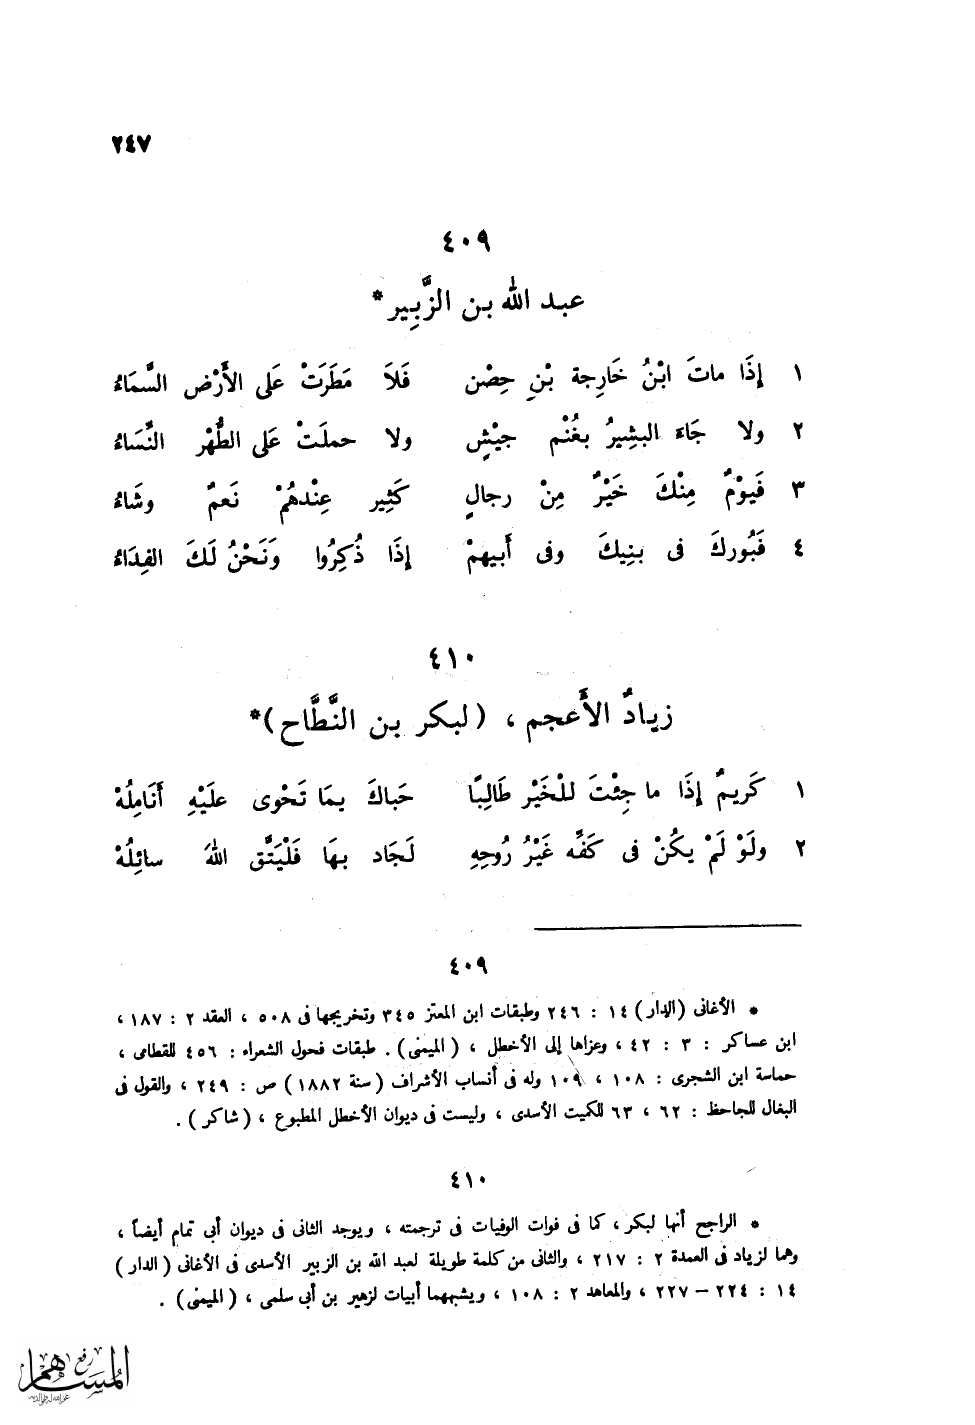 ٢٤٧
٤٠٩
عبد الله بن الزَّبِير*
١ إِذَا ماتَ ابْنُ خَارِجة بْنِ حِصْن فَلاَ مَطَرَتْ عَلى الأَرْض السَّمَاءُ
٢ ولا جَاءَ البشِيرُ بغُنْم جيْشٍ ولا حملَتْ عَلى الطُّهْر النِّسَاءُ
٣ فَيوْمٌ مِنْكَ خَيْرٌ مِنْ رجالٍ كَثِير عِنْدهُمْ نَعمٌ وشَاءُ
٤ فَبُوركَ فى بنِيكَ وفى أَبيهمْ إِذَا ذُكِرُوا وَنَحْنُ لَكَ الفِدَاءُ
٤١٠
زيادٌ الأَعجم ، (لبكر بن النَّطَّاح)*
١ كَريمٌ إِذَا ما جِئْتَ للْخَيْر طَالِبًا حَباكَ بمَا تَحْوى علَيْهِ أَنَامِلُهْ
٢ ولَوْ لَمْ يكُنْ فى كَفِّه غَيْرُ رُوحِهِ لَجَاد بهَا فَلْيَتَّق اللهَ سائِلُهْ
٤٠٩
* الأغانى (الدار) ١٤ : ٢٤٦ وطبقات ابن المعتز ٣٤٥ وتخريجها فى ٥٠٨ ، العقد ٢ : ١٨٧ ،
ابن عساكر : ٣ : ٤٢ ، وعزاها إلى الأخطل ، (الميمنى) . طبقات فحول الشعراء : ٤٥٦ للقطامى ،
حماسة ابن الشجرى : ١٠٨ ، ١٠٩ وله فى أنساب الأشراف (سنة ١٨٨٢) ص : ٢٤٩ ، والقول فى
البغال للجاحظ : ٦٢ ، ٦٣ للكيت الأسدى ، وليست فى ديوان الأخطل المطبوع ، (شاكر) .
٤١٠
* الراجح أنها لبكر ، كما فى فوات الوفيات فى ترجمته ، ويوجد الثانى فى ديوان أبى تمام أيضاً ،
وهما لزياد فى العمدة ٢ : ٢١٧ ، والثانى من كلمة طويلة لعبد الله بن الزبير الأسدى فى الأغانى (الدار)
١٤ : ٢٢٤ – ٢٢٧ ، والمعاهد ٢ : ١٠٨ ، ويشبههما أبيات لزهير بن أبى سلمى ، (الميمنى) .
رفع
المساهم